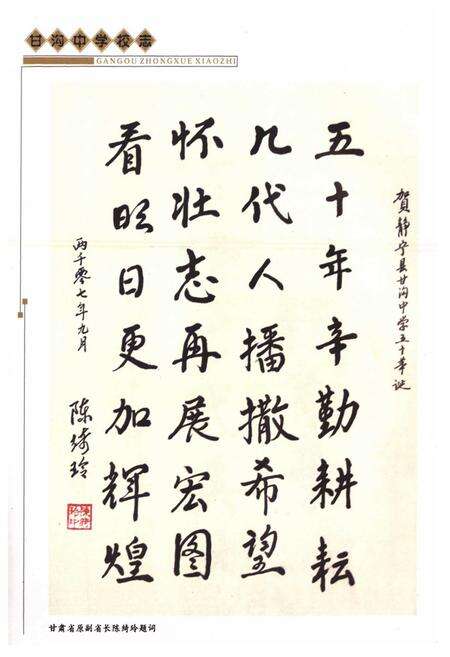 甘沟中学校志
GANGOU ZHONGXUE XIAOZHI
賀静宁县甘沟中学五十華诞
五十年辛勤耕耘
几代人播撒希望
怀壮志再展宏图
看明日更加輝煌
两千零七年九月
陈绮玲
甘肃省原副省长陈绮玲题词